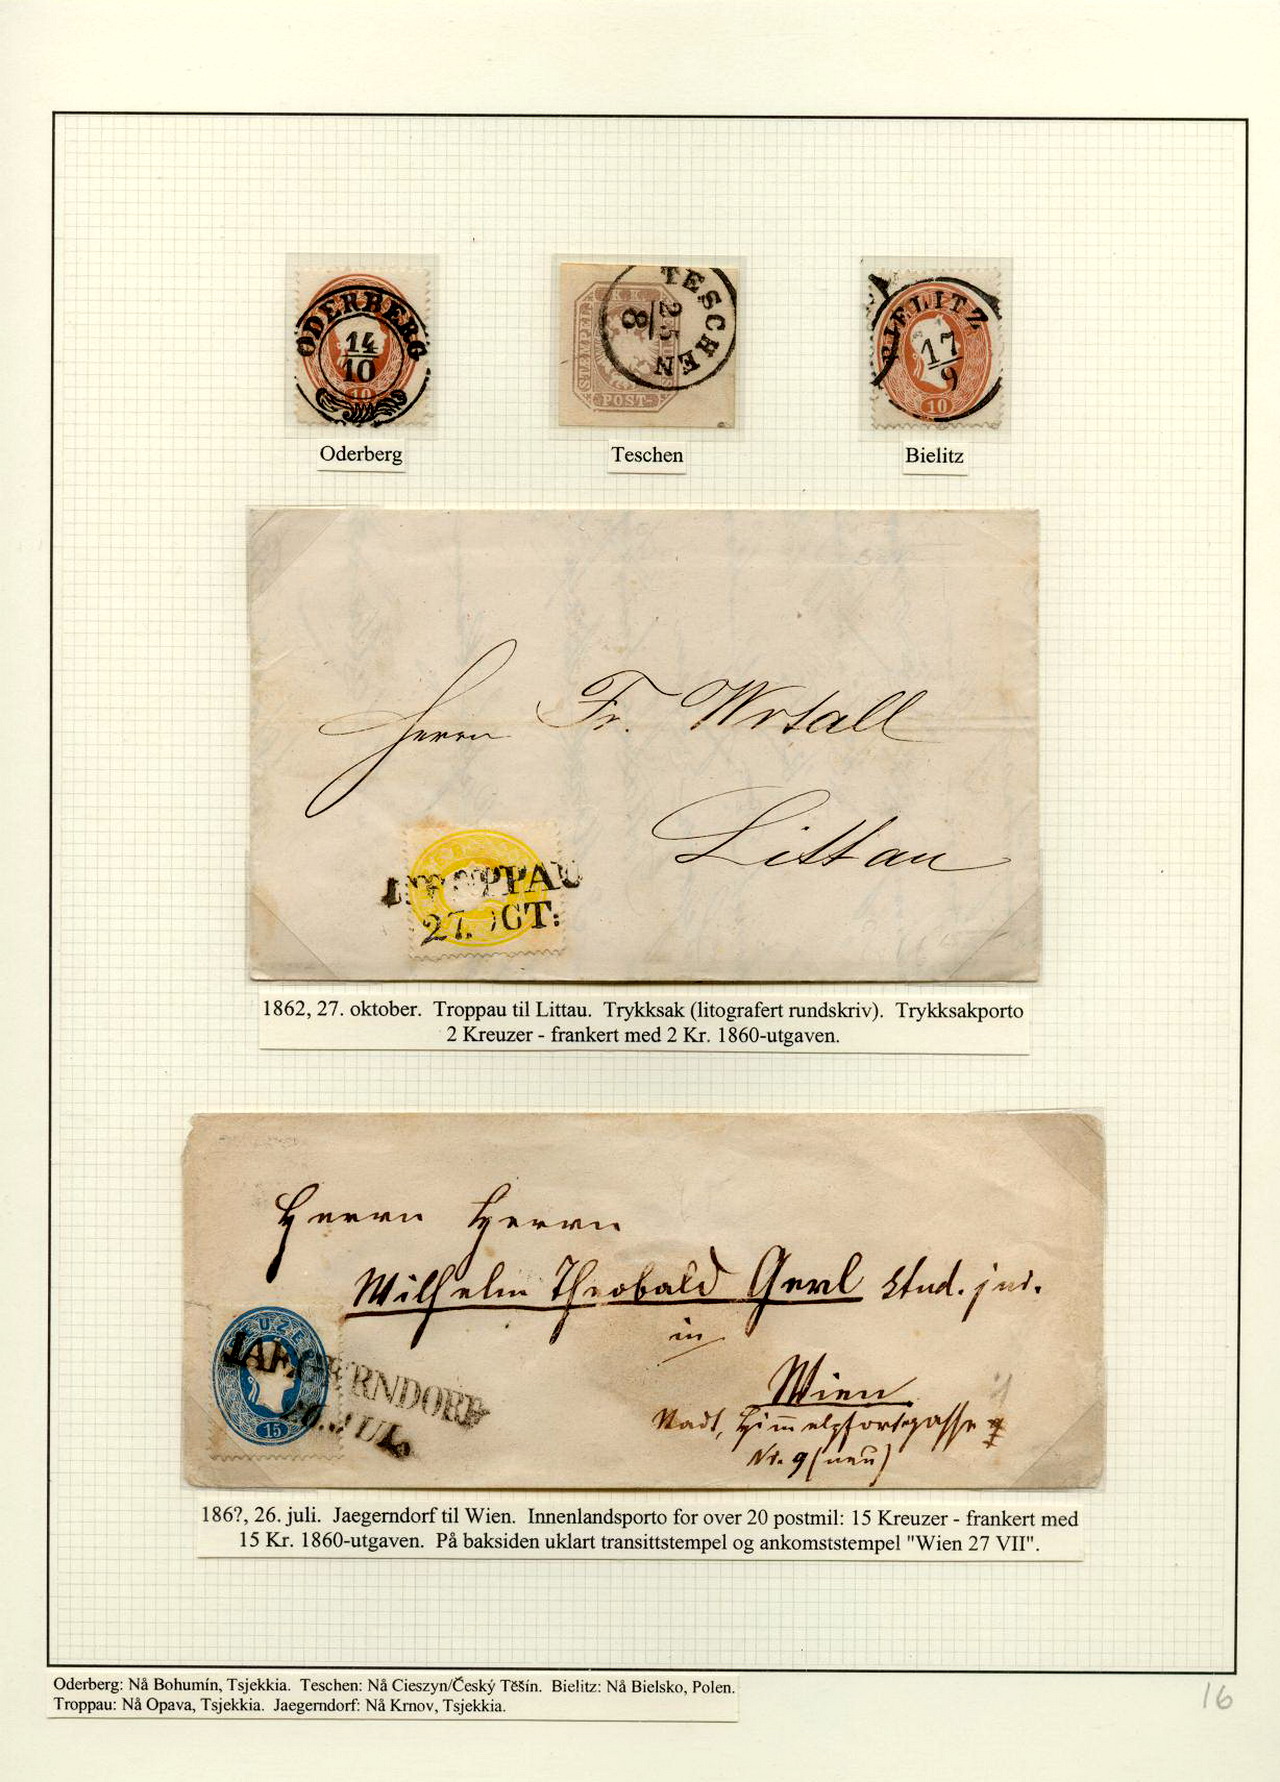 ODERBERG
14
10
10
TESCHEN
25
8
STEMPEL
POST-
BIELITZ
17
9
10
Oderberg
Teschen
Bielitz
Herrn Fr. Wrtall
Littau
TROPPAU
27. OCT:
1862, 27. oktober. Troppau til Littau. Trykksak (litografert rundskriv). Trykksakporto
2 Kreuzer - frankert med 2 Kr. 1860-utgaven.
Herrn Herrn
Wilhelm Theobald Gerl stud. jur.
in
Wien
Stadt, Himmelpfortgasse
Nr. 9 (neu)
KREUZER
JAEGERNDORF
26. JUL.
15
186?, 26. juli. Jaegerndorf til Wien. Innenlandsporto for over 20 postmil: 15 Kreuzer - frankert med
15 Kr. 1860-utgaven. På baksiden uklart transittstempel og ankomststempel "Wien 27 VII".
Oderberg: Nå Bohumín, Tsjekkia. Teschen: Nå Cieszyn/Český Těšín. Bielitz: Nå Bielsko, Polen.
Troppau: Nå Opava, Tsjekkia. Jaegerndorf: Nå Krnov, Tsjekkia.
16